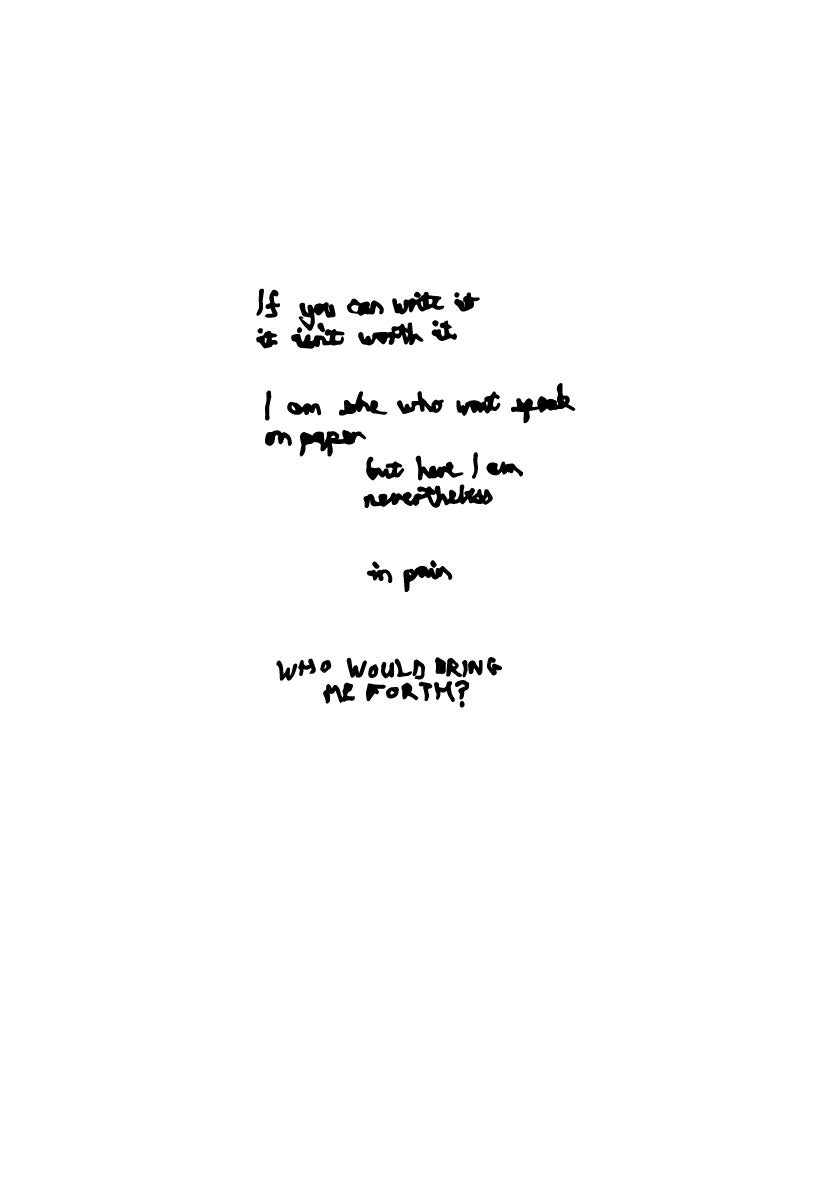 If you can write it
it isn't worth it
I am she who wont speak
on paper
but here I am
nevertheless
in pain
WHO WOULD BRING
ME FORTH?